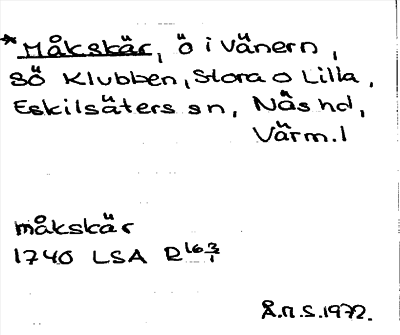 *Måkskär, ö i Vänern,
SÖ Klubben, Stora o Lilla,
Eskilsäters sn, Näs hd,
Värm. l
måkskär
1740 LSA R 16 3/1
Å.M.S. 1972.